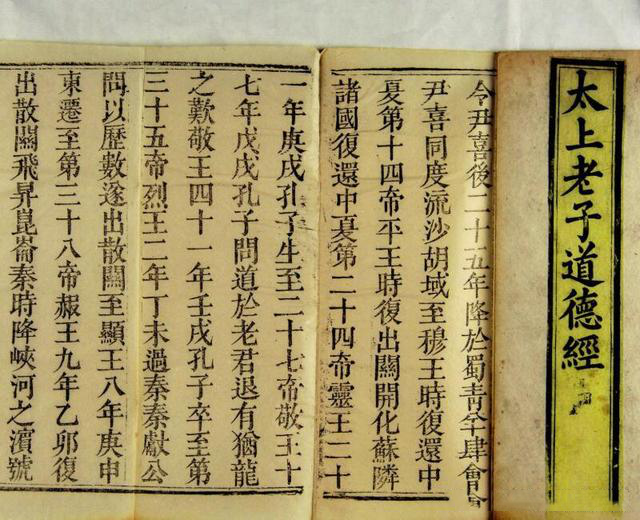 太上老子道德經
令尹喜後二十五年降於蜀青羊肆會
尹喜同度流沙胡域至穆王時復還中
夏第十四帝平王時復出關開化蘇隣
諸國復還中夏第二十四帝靈王二十
一年庚戌孔子生至二十七帝敬王十
七年戊戌孔子問道於老君退有猶龍
之歎敬王四十一年壬戌孔子卒至第
三十五帝烈王二年丁未過秦秦獻公
問以歷數遂出散關至顯王八年庚申
東遷至第三十八帝赧王九年乙卯復
出散關飛昇崑崙秦時降峽河之濱號